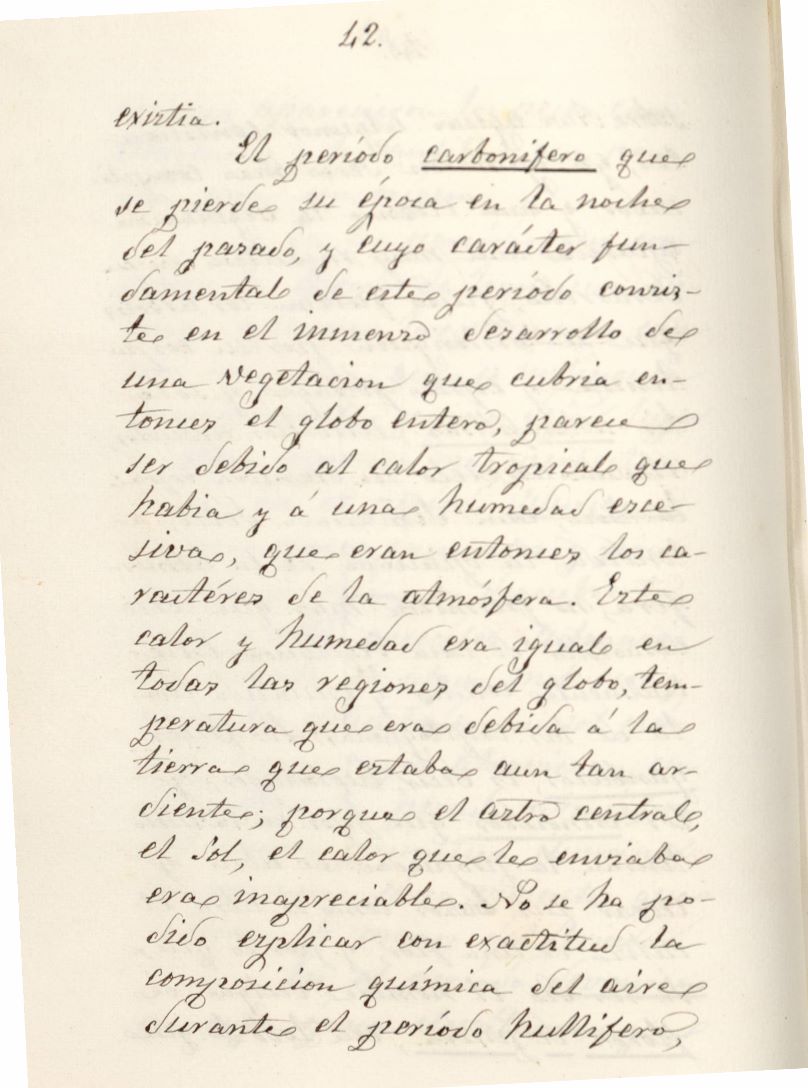 42.
existia.
El período carbonifero que
se pierde su época en la noche
del pasado, y cuyo carácter fun-
damental de este período consis-
te en el inmenso desarrollo de
una vegetacion que cubria en-
tonces el globo entero, parece
ser debido al calor tropical que
habia y á una humedad esce-
siva, que eran entonces los ca-
ractéres de la atmósfera. Este
calor y humedad era igual en
todas las regiones del globo, tem-
peratura que era debida á la
tierra que estaba aun tan ar-
diente; porque el astro central,
el Sol, el calor que le enviaba
era inapreciable. No se ha po-
dido esplicar con exactitud la
composicion química del aire
durante el período hullifero,